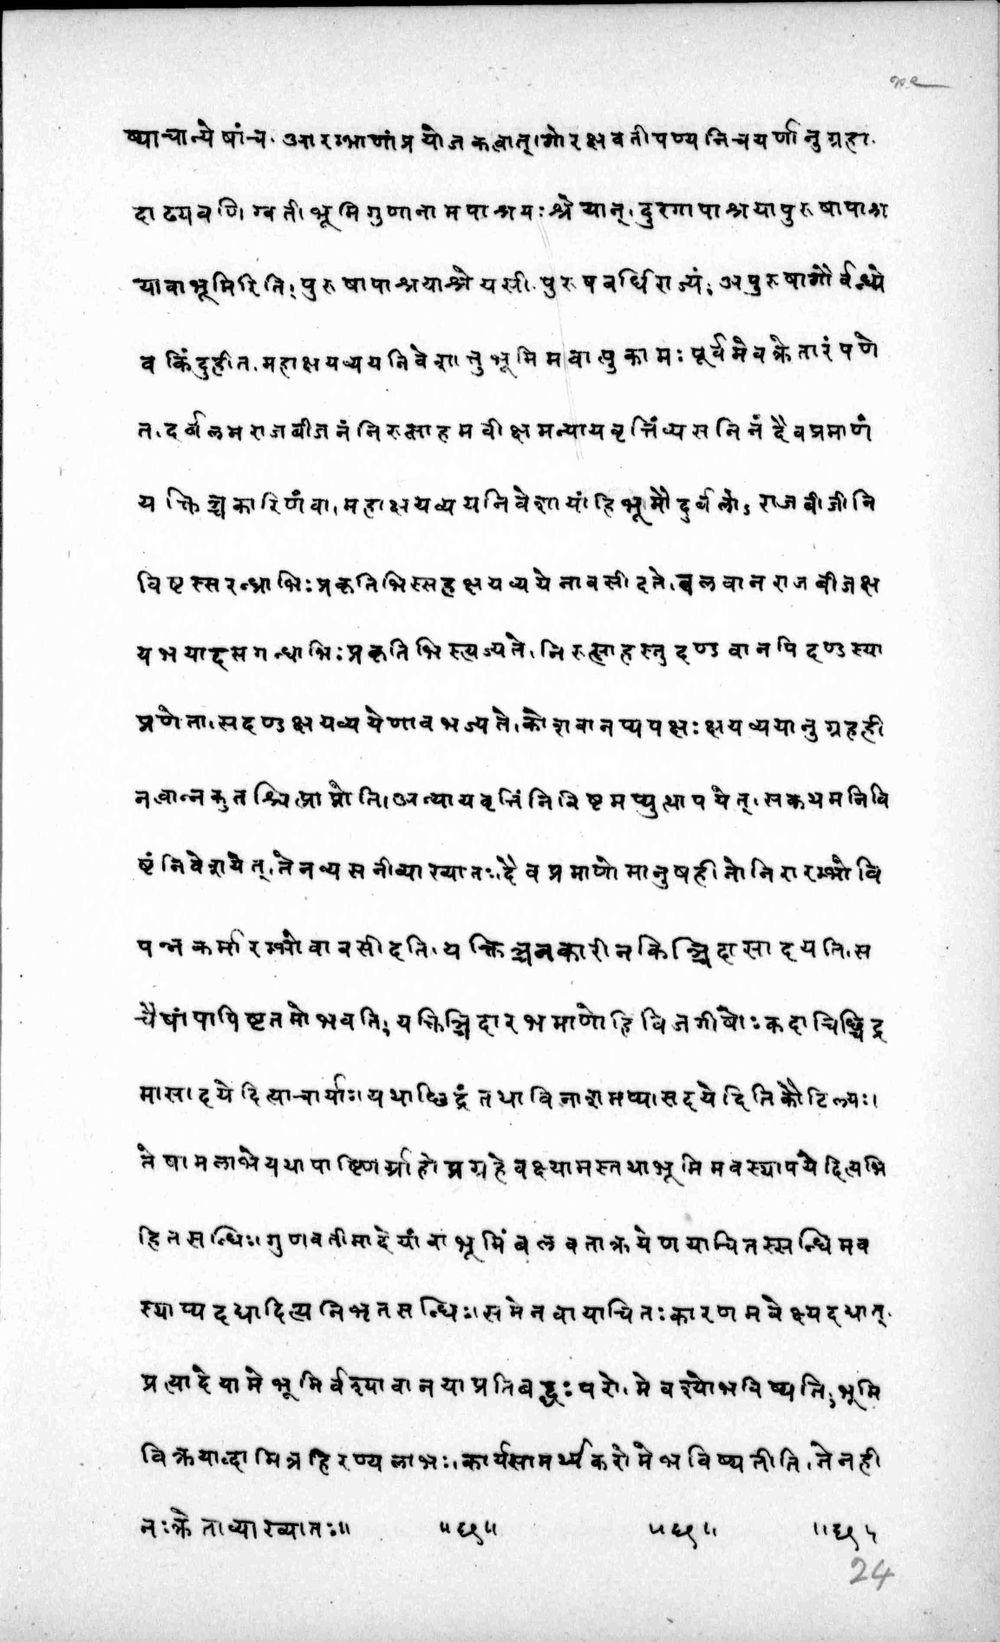 ष्याचान्येषांच. आरम्भाणांप्रयोजकत्वात्।गोरक्षवतीपण्यनिचयर्णानुग्रहा.
दाढ्यवणिग्वती।भूमिगुणानामपाश्रयःश्रेयान्.दुरगापाश्रयापुरुषापाश्र
यावाभूमिरिति;पुरुषापाश्रयाश्रेयसी.पुरुषवर्धिराज्यं;अपुरुषागौर्वन्ध्ये
वकिंदुहीत.महाक्षयव्ययनिवेशात्तुभूमिमवाप्तुकामःपूर्वमेवक्रेतारंपणे
त.दर्बलमराजबीजनंनिरुत्साहमवीक्षमन्यायवृत्तिंव्यसनिनंदैवप्रमाणं
यत्किञ्चकारिणंवा।महाक्षयव्ययनिवेशायांहिभूमौदुर्बलो;राजबीजीनि
विष्टस्सरन्ध्राभिःप्रकृतिभिस्सहक्षयव्ययेनावसीदते.बलवानराजबीजक्ष
यभयादसगन्धाभिःप्रकृतिभिस्त्यज्यते।निरुत्साहस्तुदण्डवानपिदण्डस्या
प्रणेता।सदण्डक्षयव्ययेणावभज्यते.कोशवानप्यपक्षःक्षयव्ययानुग्रहही
नत्वान्नकुतश्चित्प्राप्नोति।अन्यायवृत्तिंनिविष्टमप्युत्थापयेत्.सकथमनिवि
ष्टंनिवेशयेत्.तेनव्यसनीव्याख्यातः।दैवप्रमाणोमानुषहीनोनिरारम्भोवि
पन्नकर्मारम्भोवावसीदति।यत्किञ्चनकारीनकिञ्चिदासादयति.स
चैषांपापिष्टतमोभवति;यत्किञ्चिदारभमाणोहिविजगीषोःकदाचिच्छिद्र
मासादयेदित्याचार्याः।यथाछिद्रंतथाविनाशमप्यासदयेदितिकौटिल्यः।
तेषामलाभेयथापार्ष्णिर्ग्राहोप्रग्रहेवक्ष्यामस्तथाभूमिमवस्थापयेदित्यभि
हितसन्धिः।गुणवतीमादेयांवाभूमिंबलवताक्रयेणयाचितस्सन्धिमव
स्थाप्यदधादित्यनिभृतसन्धिः।समेनवायाचितःकारणमवेक्ष्यदधात्.
प्रत्यादेयामेभूमिर्वश्यावानयाप्रतिबद्धःपरो.मेवश्योभविष्यति;भूमि
विक्रयाद्वामित्रहिरण्यलाभः।कार्यसामर्थ्यकरोमेभविष्यतीति.तेनही
नःक्रेताव्याख्यातः॥ ॥६९॥ ॥६९॥ ॥६९॥
24